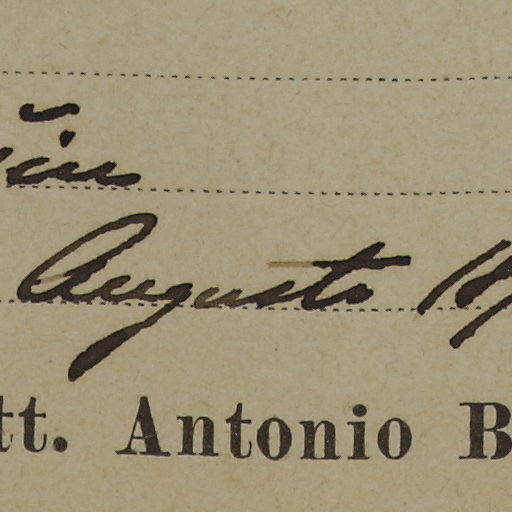 Augusto
tt. Antonio B